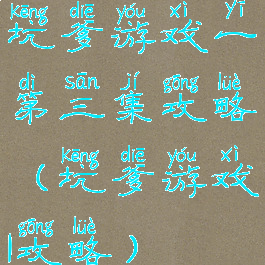 kēng diē yóu xì yī
坑爹游戏一
dì sān jí gōng lüè
第三集攻略
kēng diē yóu xì
（坑爹游戏
gōng lüè
|攻略）